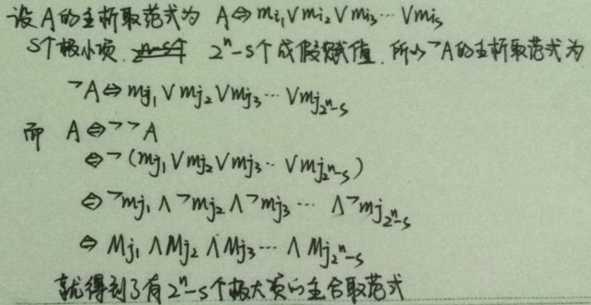 设A的主析取范式为 A⇔mi₁∨mi₂∨mi₃…∨miₛ
S个极小项. 2ⁿ-s个成假赋值, 所以¬A的主析取范式为
¬A⇔mj₁∨mj₂∨mj₃…∨mj₂ⁿ₋ₛ
而 A⇔¬¬A
⇔¬(mj₁∨mj₂∨mj₃…∨mj₂ⁿ₋ₛ)
⇔¬mj₁∧¬mj₂∧¬mj₃…∧¬mj₂ⁿ₋ₛ
⇔Mj₁∧Mj₂∧Mj₃…∧Mj₂ⁿ₋ₛ
就得到了有2ⁿ-s个极大项的主合取范式